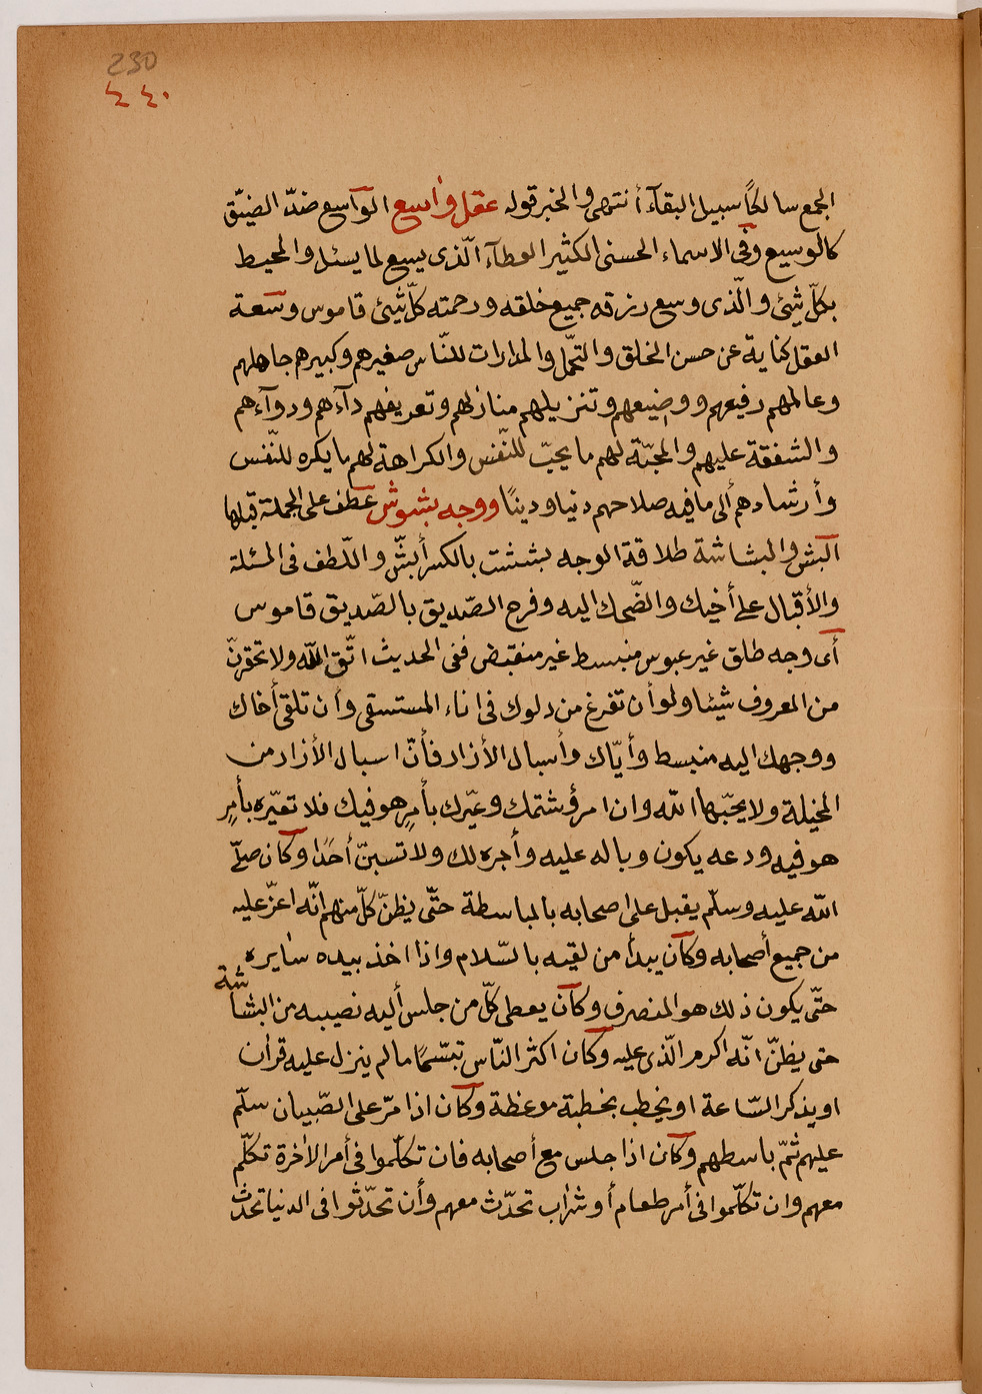 230
٤٤٠
الجمع سالكاً سبيل البقآء أنتهى والخبر قوله عقل واسع الواسع ضدّ الضيّق
كالوسيع وفى الاسماء الحسنى الكثير العطآء الّذى يسع لما يسئل والمحيط
بكلّ شئ والّذى وسع رزقه جميع خلقه ورحمته كلّ شئ قاموس وسعة
العقل كناية عن حسن الخلق والتحمّل والمدارات للنّاس صغيرهم وكبيرهم جاهلهم
وعالمهم رفيعهم ووضيعهم وتنزيلهم منازلهم وتعريفهم دآءهم ودوآءهم
والشفقة عليهم والمحبّة لهم ما يحبّ للنّفس والكراهة لهم ما يكره للنّفس
وأرشادهم ألى ما فيه صلاحهم دنيا ودينًا ووجه بشوش عطف على الجملة قبلها
البش والبشاشة طلاقة الوجه بششت بالكسر أبشّ واللّطف فى المسئلة
والأقبال على أخيك والضّحك اليه وفرح الصّديق بالصّديق قاموس
أى وجه طلق غير عبوس منبسط غير منقبض ففى الحديث اتّق الله ولا تحقرنّ
من المعروف شيئا ولو أن تفرغ من دلوك فى اناء المستسقى وأن تلقى أخاك
ووجهك اليه منبسط وأيّاك وأسبال الأزار فأنّ اسبال الأزار من
المخيلة ولا يحبّها الله وان امرؤ شتمك وعيّرك بأمرٍ هو فيك فلا تعيّره بأمرٍ
هو فيه ودعه يكون وباله عليه وأجره لك ولا تسبنّ أحدًا وكان صلّى
الله عليه وسلّم يقبل على اصحابه بالمباسطة حتّى يظنّ كلّ منهم انّه اعزّ عليه
من جميع أصحابه وكان يبدأ من لقيه بالسّلام واذا اخذ بيده سايره
حتّى يكون ذلك هو المنصرف وكان يعطى كلّ من جلس أليه نصيبه من البشاشة
حتى يظنّ انّه اكرم الّذى عليه وكان اكثر النّاس تبسّمًا ما لم ينزل عليه قرآن
او يذكر السّاعة او يخطب بخطبة موعظة وكان اذا مرّ على الصّبيان سلّم
عليهم ثمّ باسطهم وكان اذا جلس مع أصحابه فان تكلّموا فى أمر الاخرة تكلّم
معهم وان تكلّموا فى أمر طعام أو شراب تحدّث معهم وأن تحدّثوا فى الدنيا تحدّث